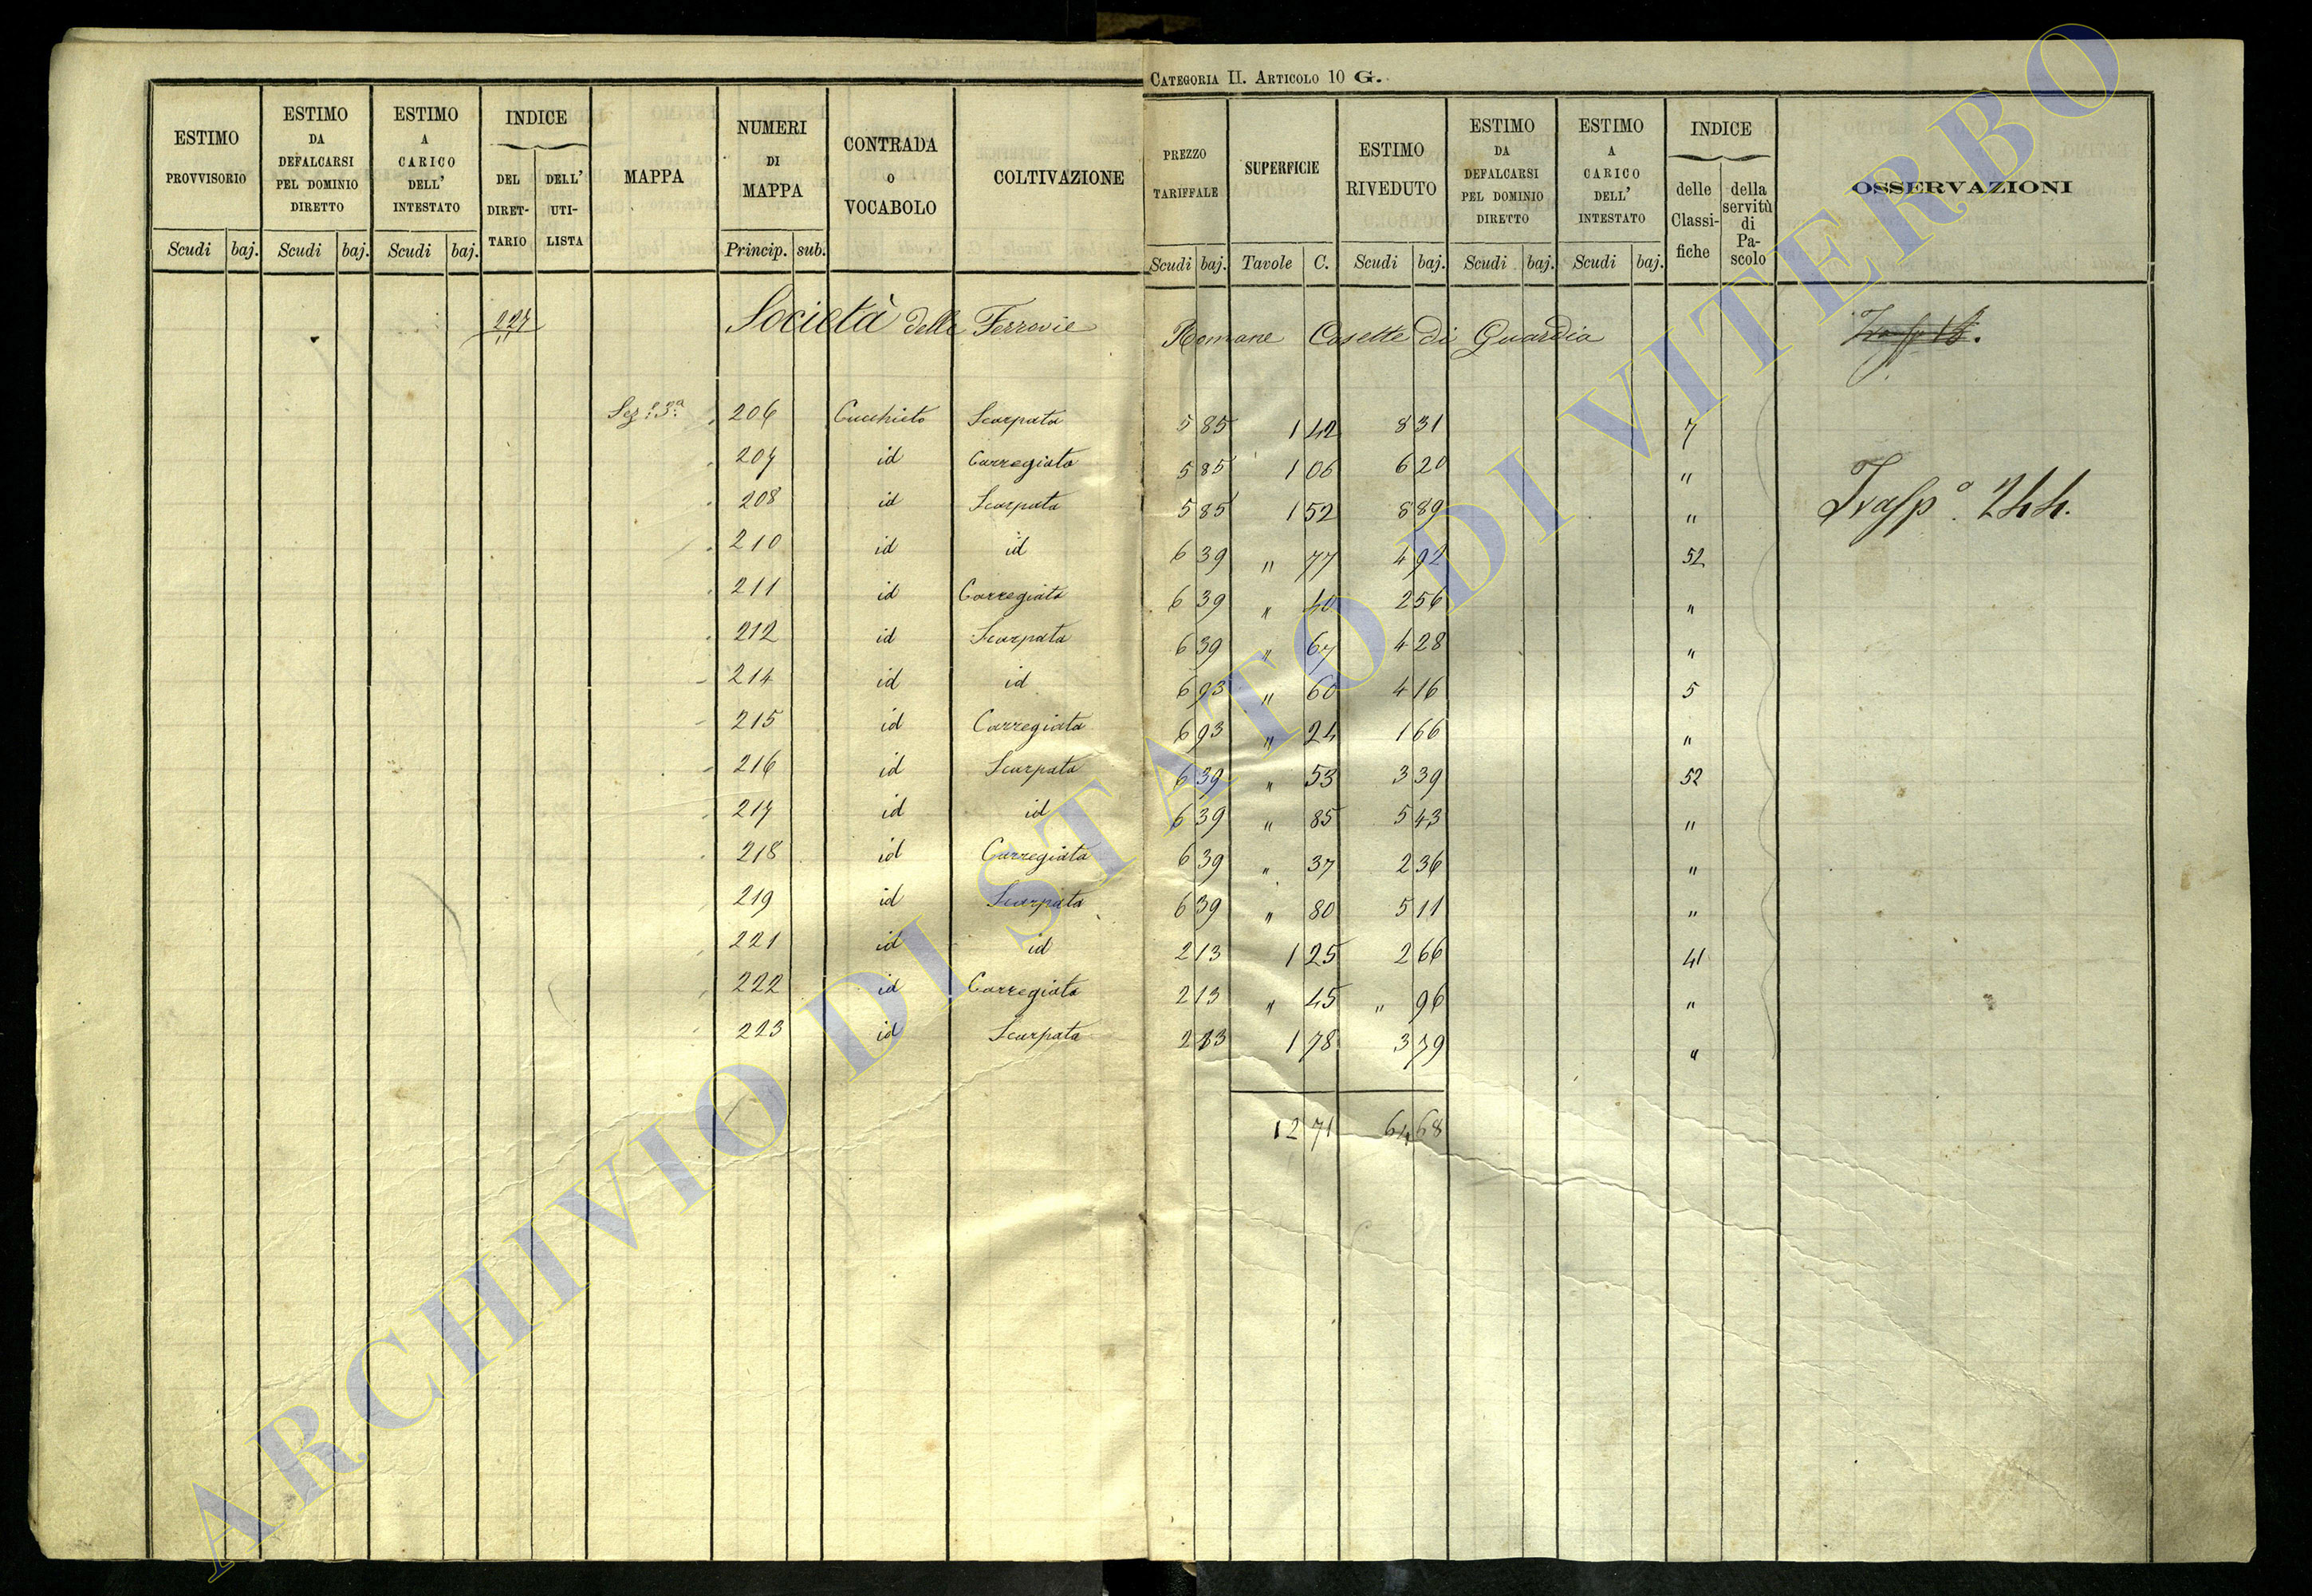 CATEGORIA II. ARTICOLO 10 G.
ESTIMO PROVVISORIO
ESTIMO DA DEFALCARSI PEL DOMINIO DIRETTO
ESTIMO A CARICO DELL' INTESTATO
INDICE
DEL DIRET-TARIO
DELL' UTI-LISTA
MAPPA
NUMERI DI MAPPA
CONTRADA O VOCABOLO
COLTIVAZIONE
PREZZO TARIFFALE
SUPERFICIE
ESTIMO RIVEDUTO
ESTIMO DA DEFALCARSI PEL DOMINIO DIRETTO
ESTIMO A CARICO DELL' INTESTATO
INDICE
delle Classi-fiche
della servitù di Pa-scolo
OSSERVAZIONI
Scudi baj. Scudi baj. Scudi baj. Princip. sub. Scudi baj. Tavole C. Scudi baj. Scudi baj. Scudi baj.
227 Società delle Ferrovie Romane Casette di Guardia
Sez: 3ª 206 Cucchieto Scarpata 5 85 1 42 8 31 7
207 id Carregiata 5 85 1 06 6 20 "
208 id Scarpata 5 85 1 52 8 89 "
Trasp° 244.
210 id id 6 39 " 77 4 92 52
211 id Carregiata 6 39 " 40 2 56 "
212 id Scarpata 6 39 " 67 4 28 "
214 id id 6 93 " 60 4 16 5
215 id Carregiata 6 93 " 24 1 66 "
216 id Scarpata 6 39 " 53 3 39 52
217 id id 6 39 " 85 5 43 "
218 id Carregiata 6 39 " 37 2 36 "
219 id Scarpata 6 39 " 80 5 11 "
221 id id 2 13 1 25 2 66 41
222 id Carregiata 2 13 " 45 " 96 "
223 id Scarpata 2 13 1 78 3 79 "
12 71 64 68
ARCHIVIO DI STATO DI VITERBO